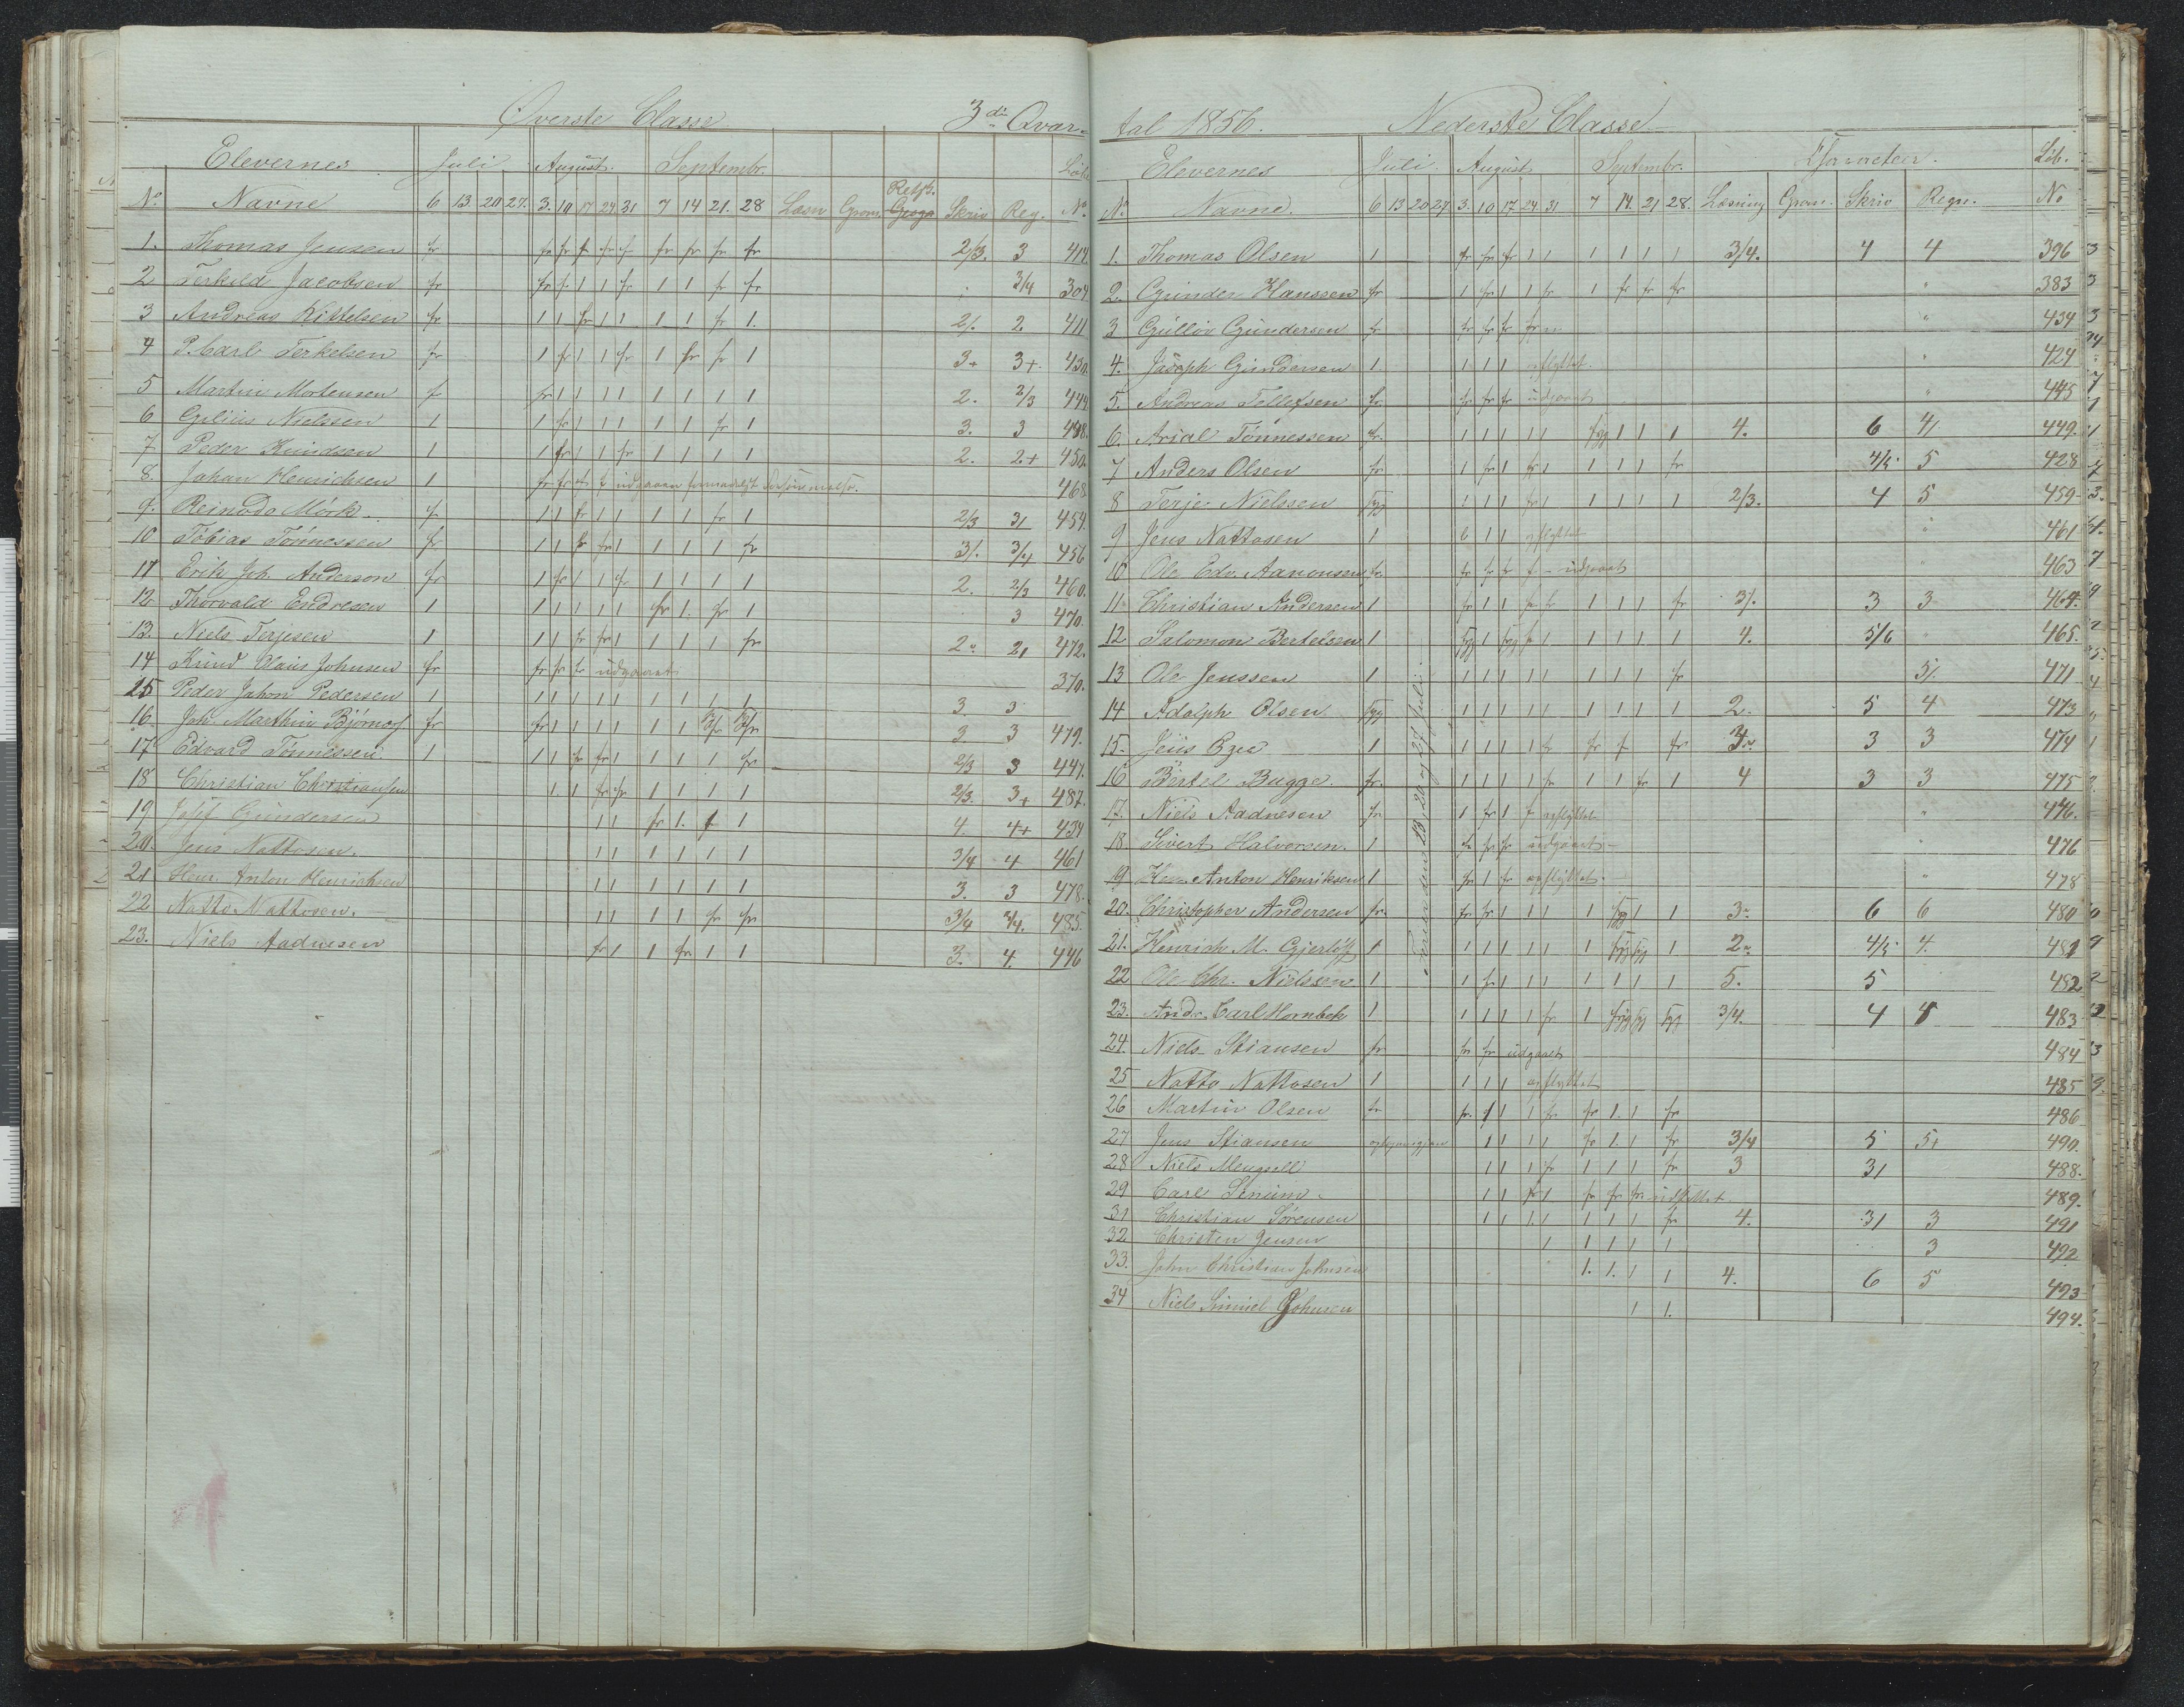 Øverste Classe 3die Qvar-
Elevernes Juli August. Septembr.
No. Navne 6 13 20 27. 3. 10 17 24 31 7 14 21. 28 Læsn Gram. Retsk. Skriv Reg. No.
1. Thomas Jensen fr fr fr fr fr fr fr fr fr 2/3. 3 414.
2 Terkild Jacobsen fr fr fr 1 1 fr 1 1 fr fr 3/4 304.
3 Andreas Kittelsen fr 1 1 fr 1 1 1 1 fr 1. 2/. 2. 411
4 P. Carl Terkelsen fr 1 fr 1 1 fr 1 fr fr 1 3+ 3+. 430.
5 Martin Mortensen fr fr 1 1 1 1 1 1 1 1 2. 2/3 444
6 Gilius Nielssen 1 1 fr 1 1 1 1 1 fr 1 3. 3 448.
7 Peder Knudsen 1 1 fr 1 1 fr 1 1 1 1 2. 2+ 450.
8. Johan Henrichsen 1 fr fr fr fr udgaaen 468
9. Reinado Mörk fr 1 1 fr 1 1 1 1 fr 1 2/3 31 454.
10 Tobias Tönnessen fr 1 1 fr fr 1 1 1 1 fr 3/. 3/4 456
11 Erik Joh. Anderson fr 1 fr 1 1 fr 1 1 1 1 2. 2/3 460.
12 Thorvald Endresen 1 1 1 1 1 1 fr 1. fr 1 3 470.
13. Niels Terjesen 1 1 1 fr fr 1 1 1 1 fr 2. 21 472.
14 Knud Claus Johnsen fr fr fr fr udgaaet 370.
15 Peder Jahon Pedersen 1 1 1 1 1 1 1 1 1 1 3. 3
16. Joh. Marthin fr fr 1 1 1 1 1 1 3 3 479.
17 Edvard Tönnessen 1 1 1 fr fr 1 1 1 1 fr 2/3 3 447.
18 Christian Christiansen 1. 1 fr fr 1 1 1 1 2/3. 3+ 487.
19 Josef Gundersen 1 1 fr 1. f 1 4. 4+ 434
20. Jens Nattosen. 1 1 1 1 1 1 3/4 4 461
21 Henr. Anton Henrichsen 1 1 1 1 1 1 3. 3 478.
22 Natto Nattosen. 1 1 1 1 fr fr 3/4 3/4. 485.
23. Niels Aadnesen fr 1 1 fr 1 1 3. 4. 446
tal 1856. Nederste Classe
Elevernes Juli. August Septembr. Lib.
No. Navne. 6 13 20 27 3. 10 17 24. 31 7 14. 21 28. Læsning Gram. Skriv Regn. No
1. Thomas Olsen 1 fr fr fr 1 1 1 1 1 1 3/4. 4 4 396
2. Gunder Hanssen fr 1 fr 1 1 fr 1 fr fr fr " 383
3 Gulløv Gundersen fr fr fr fr " 434
4. Joseph Gundersen 1 1 1 1 opflyttet. " 424
5. Andreas Tellefsen fr. fr fr fr udgaaet " 445
6. Arial Tönnessen fr. 1 1 1 1 1 syg 1 1 1 4. 6 41 449.
7 Anders Olsen fr 1 fr 1 fr 1 1 1 1 fr 4/5 5 428
8 Terje Nielssen syg 1 1 1 fr 1 1 1 1 1 2/3. 4 5 459
9 Jens Nattosen 1 6 1 1 opflyttet " 461
10 Ole Edv. Aanonsen fr. fr fr fr f - udgaaet " 463
11 Christian Andersen 1 fr 1 1 fr fr 1 1 1 fr 3/. 3 3 464.
12 Salomon Bertelsen 1 syg 1 syg fr 1 1 1 1 1 4. 5/6 465.
13 Ole Jenssen 1 1 1 1 1 1 1 1 1 fr 5/. 471
14 Adolph Olsen syg 1 1 1 1 1 1 1 1 1 2. 5 4 473
15. Jens 1 1 1 1 1 fr fr f fr 3. 3 3 474
16 Bertel Bugge. fr. 1 1 1 1 fr 1 1 fr 1 4 3 3 475
17. Niels Aadnesen fr 1 fr 1 f opflyttet " 446.
18. Sivert Halvorsen. 1 fr fr fr udgaaet " 476
19 Hen. Anton Henriksen 1 fr 1 fr opflyttet. " 478
20. Christopher Andersen fr. fr fr 1 1 1 1 syg 1 1 3. 6 6 480
21. Henrich M. Gjerløff 1 1 1 1 1 1 1 syg syg 1 2. 4/5. 4. 481
22 Ole Chr. Nielssen 1 1 fr 1 1 1 1 1 1 1 5. 5 482
23. Andr. Carl Hornbek 1 1 1 1 1 fr 1 syg syg syg 3/4. 4 4 483
24. Niels Stiansen fr fr fr udgaaet 484
25 Natto Nattosen 1 1 1 1 opflyttet 485
26 Martin Olsen fr fr. f 1 1 fr fr 1. 1 fr 486
27 Jens Stiansen 1 1 1 1 fr 1. 1 fr 3/4 5 5+ 490.
28 Niels 1 1 1 fr 1 1 1 fr 3 31 488.
29 Carl 1 1 fr 1 fr fr fr. 489.
31 Christian Sörensen 1 1 1 1 1 1 1 fr 4. 31 3 491
32 Christen Jensen 1 1 1 1 1 3 492
33. John Christian Johnsen 1. 1. 1 1 4. 6 5 493
34 Niels Johnsen 1 1. 494.
Ferier den 13, 20 og 27 Juli.